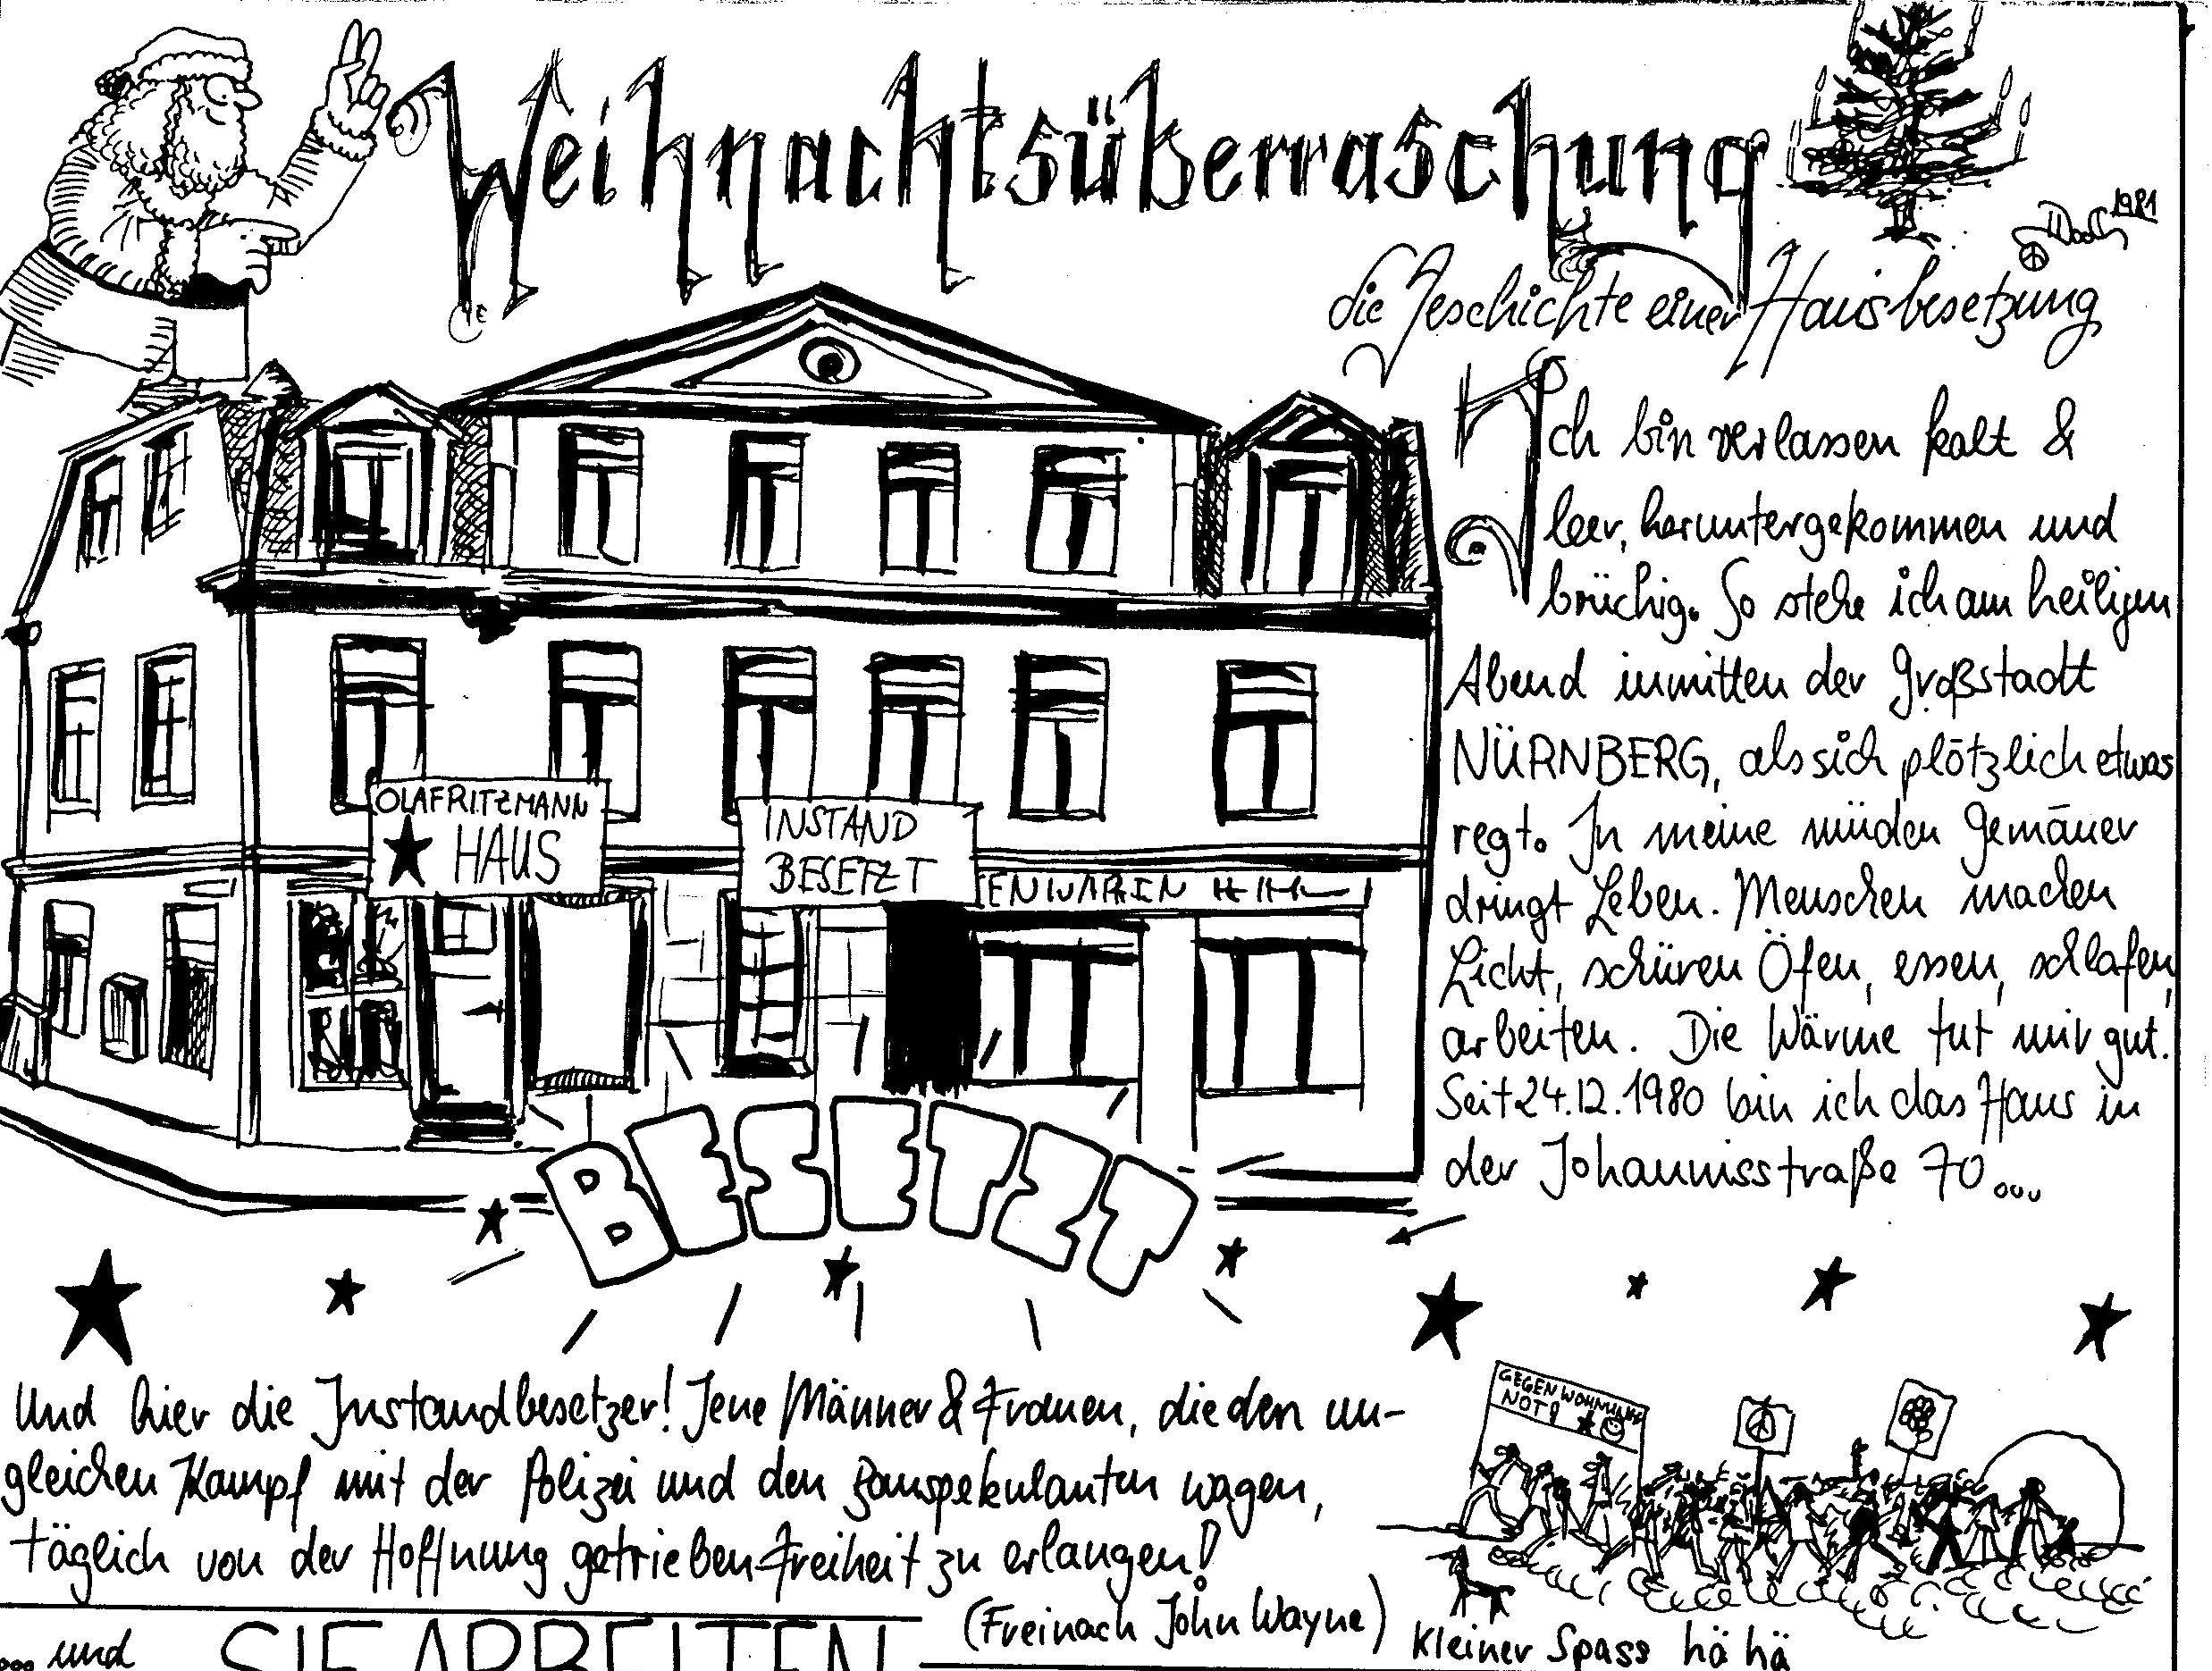 Weihnachtsüberraschung
1981
die Geschichte einer Hausbesetzung
Ich bin verlassen kalt &
leer, heruntergekommen und
brüchig. So stehe ich am heiligen
Abend inmitten der Großstadt
NÜRNBERG, als sich plötzlich etwas
regt. In meine müden Gemäuer
dringt Leben. Menschen machen
Licht, schüren Öfen, essen, schlafen,
arbeiten. Die Wärme tut mir gut.
Seit 24.12.1980 bin ich das Haus in
der Johannisstraße 70...
OLAFRITZMANN
HAUS
INSTAND
BESETZT
BESETZT
Und hier die Instandbesetzer! Jene Männer & Frauen, die den un-
gleichen Kampf mit der Polizei und den Bauspekulanten wagen,
täglich von der Hoffnung getrieben Freiheit zu erlangen!
(Frei nach John Wayne)
GEGEN WOHNUNGS
NOT!
Kleiner Spass hä hä
... und
SIE ARBEITEN